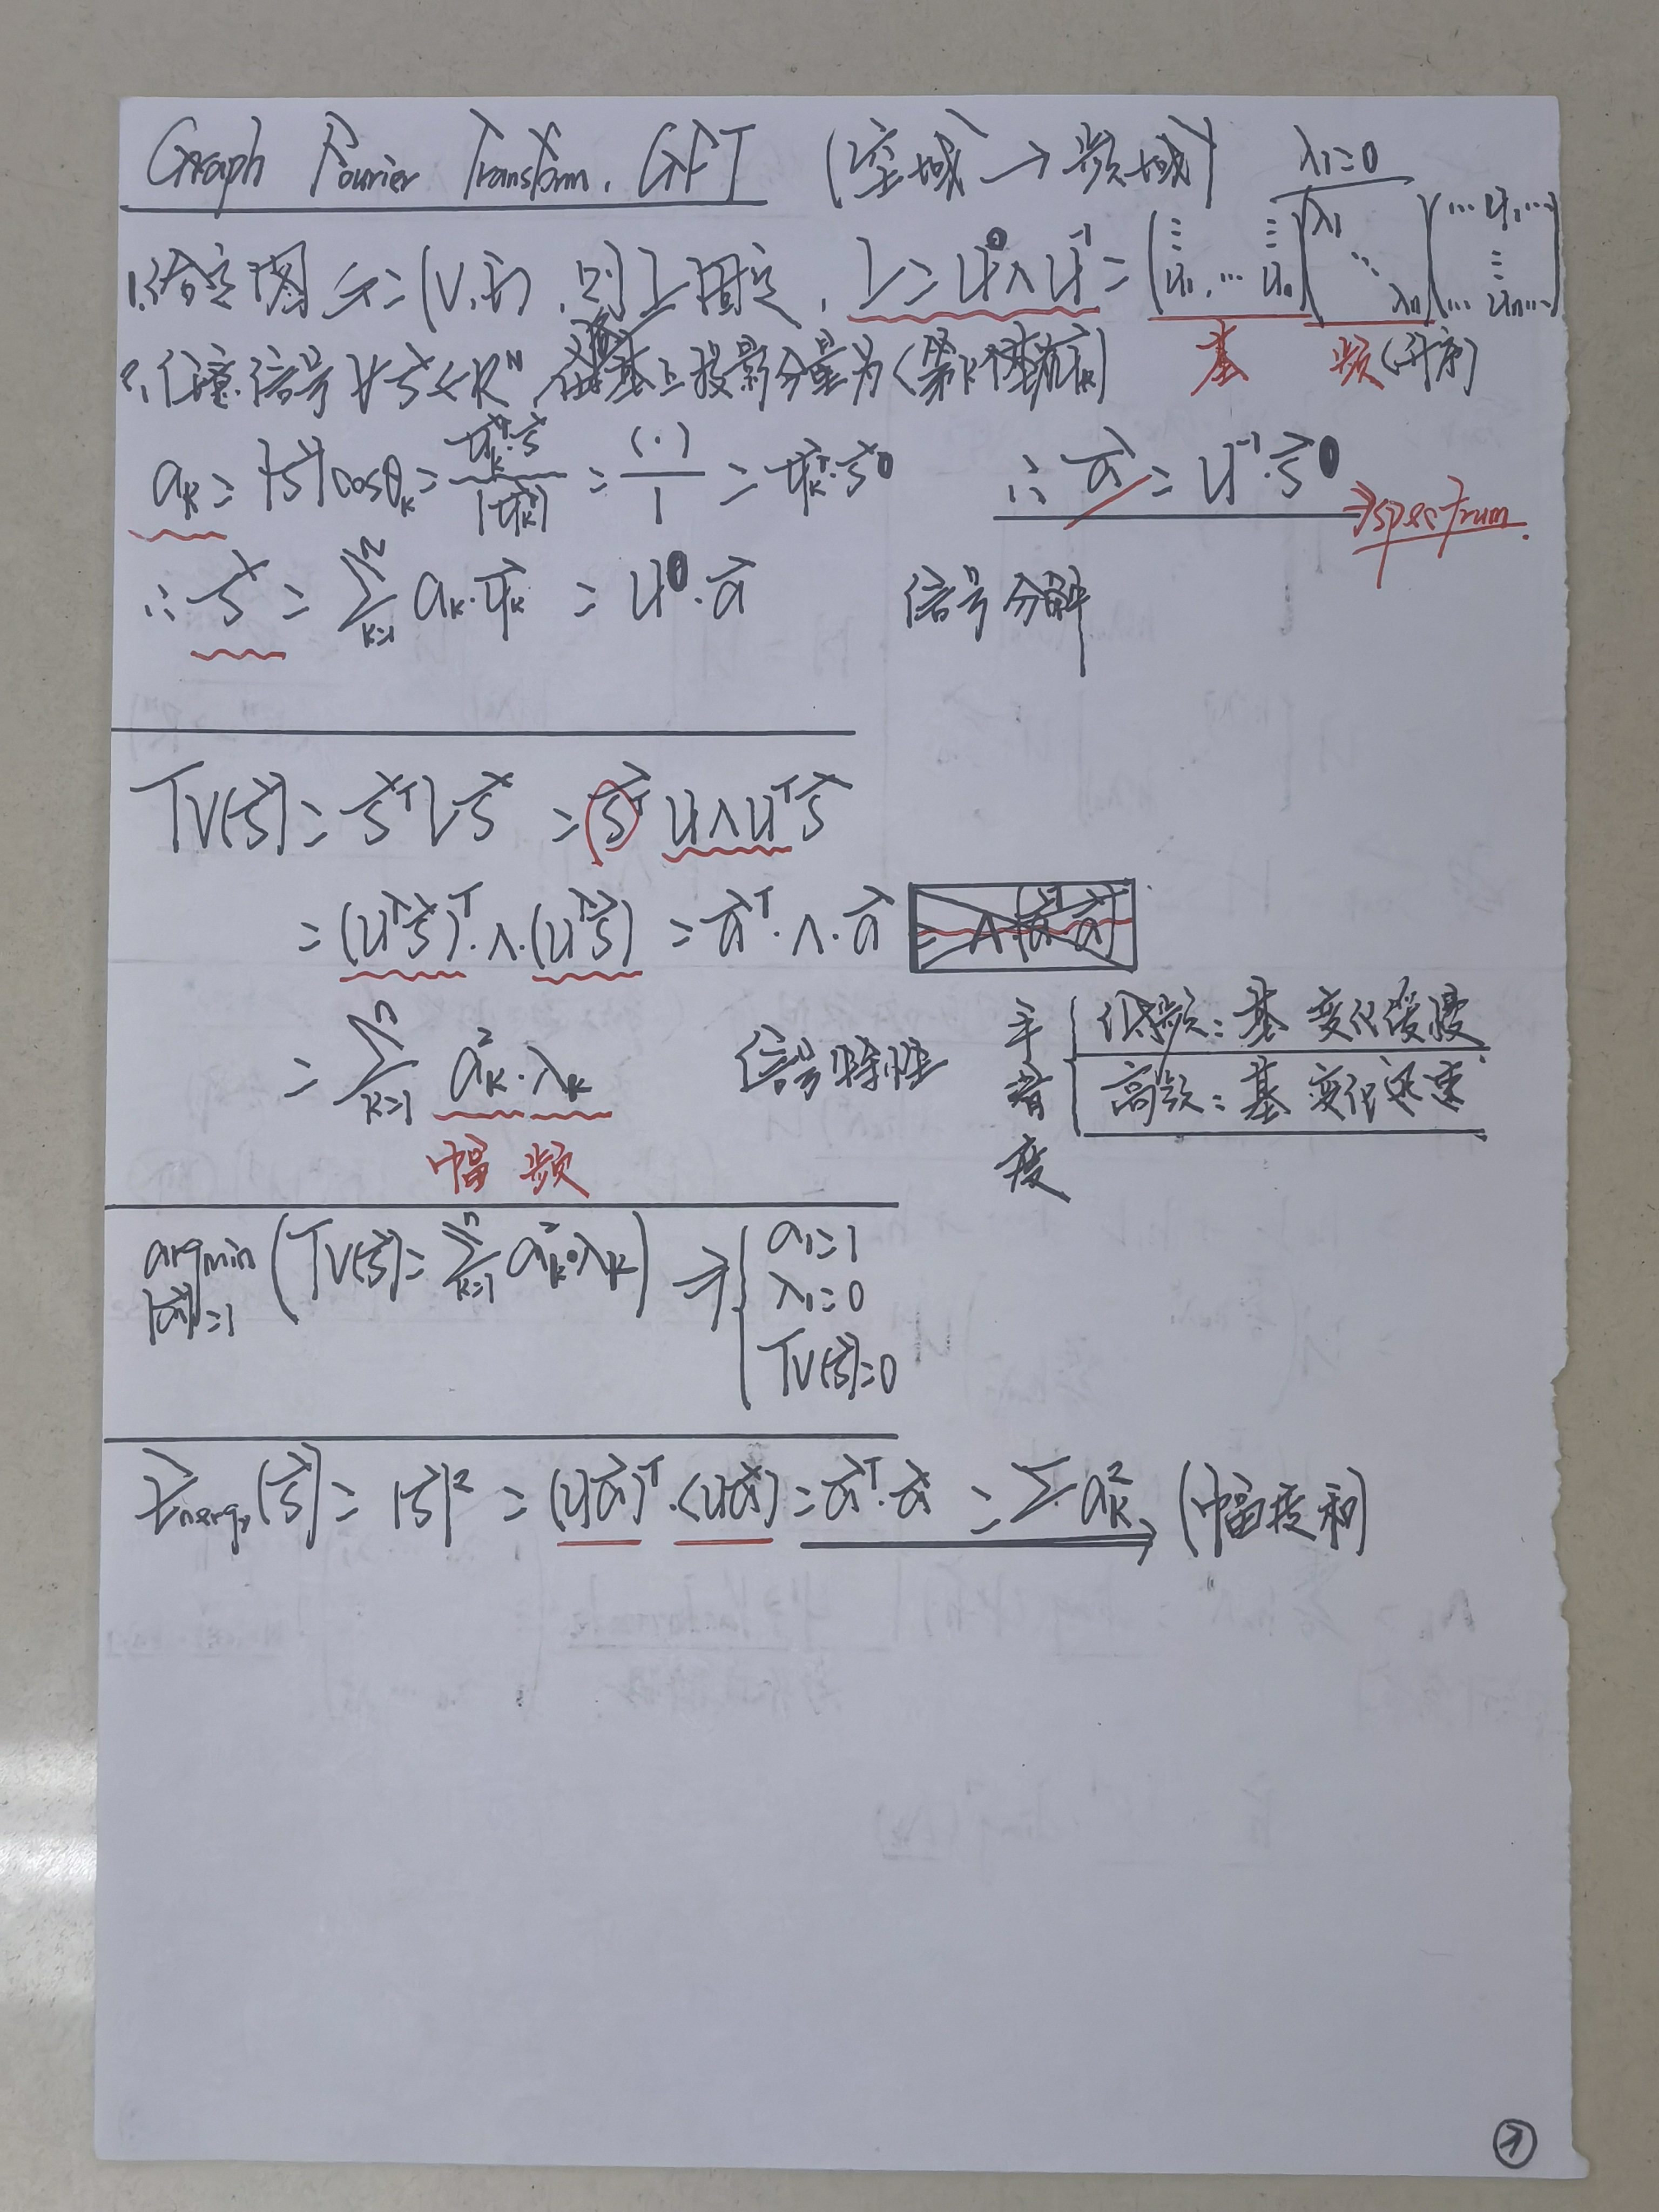 Graph Fourier Transform. GFT (空域→频域) λ₁=0
1.给定图 G=(V,E), 则L固定, L=UΛU⁻¹=(⋮ ⋮ u₁,…uₙ)(λ₁ ⋱ λₙ)(…u₁… ⋮ …uₙ…)
基 频(升序)
2.任意信号∀s⃗∈Rᴺ, 基上投影分量为(第k个基
aₖ=|s⃗|cosθₖ=u⃗ₖᵀ·s⃗/|u⃗ₖ|=(·)/1=u⃗ₖᵀ·s⃗ ∴a⃗=U⁻¹·s⃗ →spectrum.
∴s⃗=∑ₖ₌₁ⁿaₖ·u⃗ₖ=U·a⃗ 信号分解
TV(s⃗)=s⃗ᵀLs⃗=s⃗ᵀUΛUᵀs⃗
=(Uᵀs⃗)ᵀ·Λ·(Uᵀs⃗)=a⃗ᵀ·Λ·a⃗
=∑ₖ₌₁ⁿaₖ²·λₖ 信号特性 平滑度 {低频:基 变化缓慢
高频:基 变化迅速
幅 频
argmin |a⃗|=1 (TV(s⃗)=∑ₖ₌₁ⁿaₖ²·λₖ)⇒{a₁=1
λ₁=0
TV(s⃗)=0
Energy(s⃗)=|s⃗|²=(Ua⃗)ᵀ·(Ua⃗)=a⃗ᵀ·a⃗=∑aₖ² (幅度和)